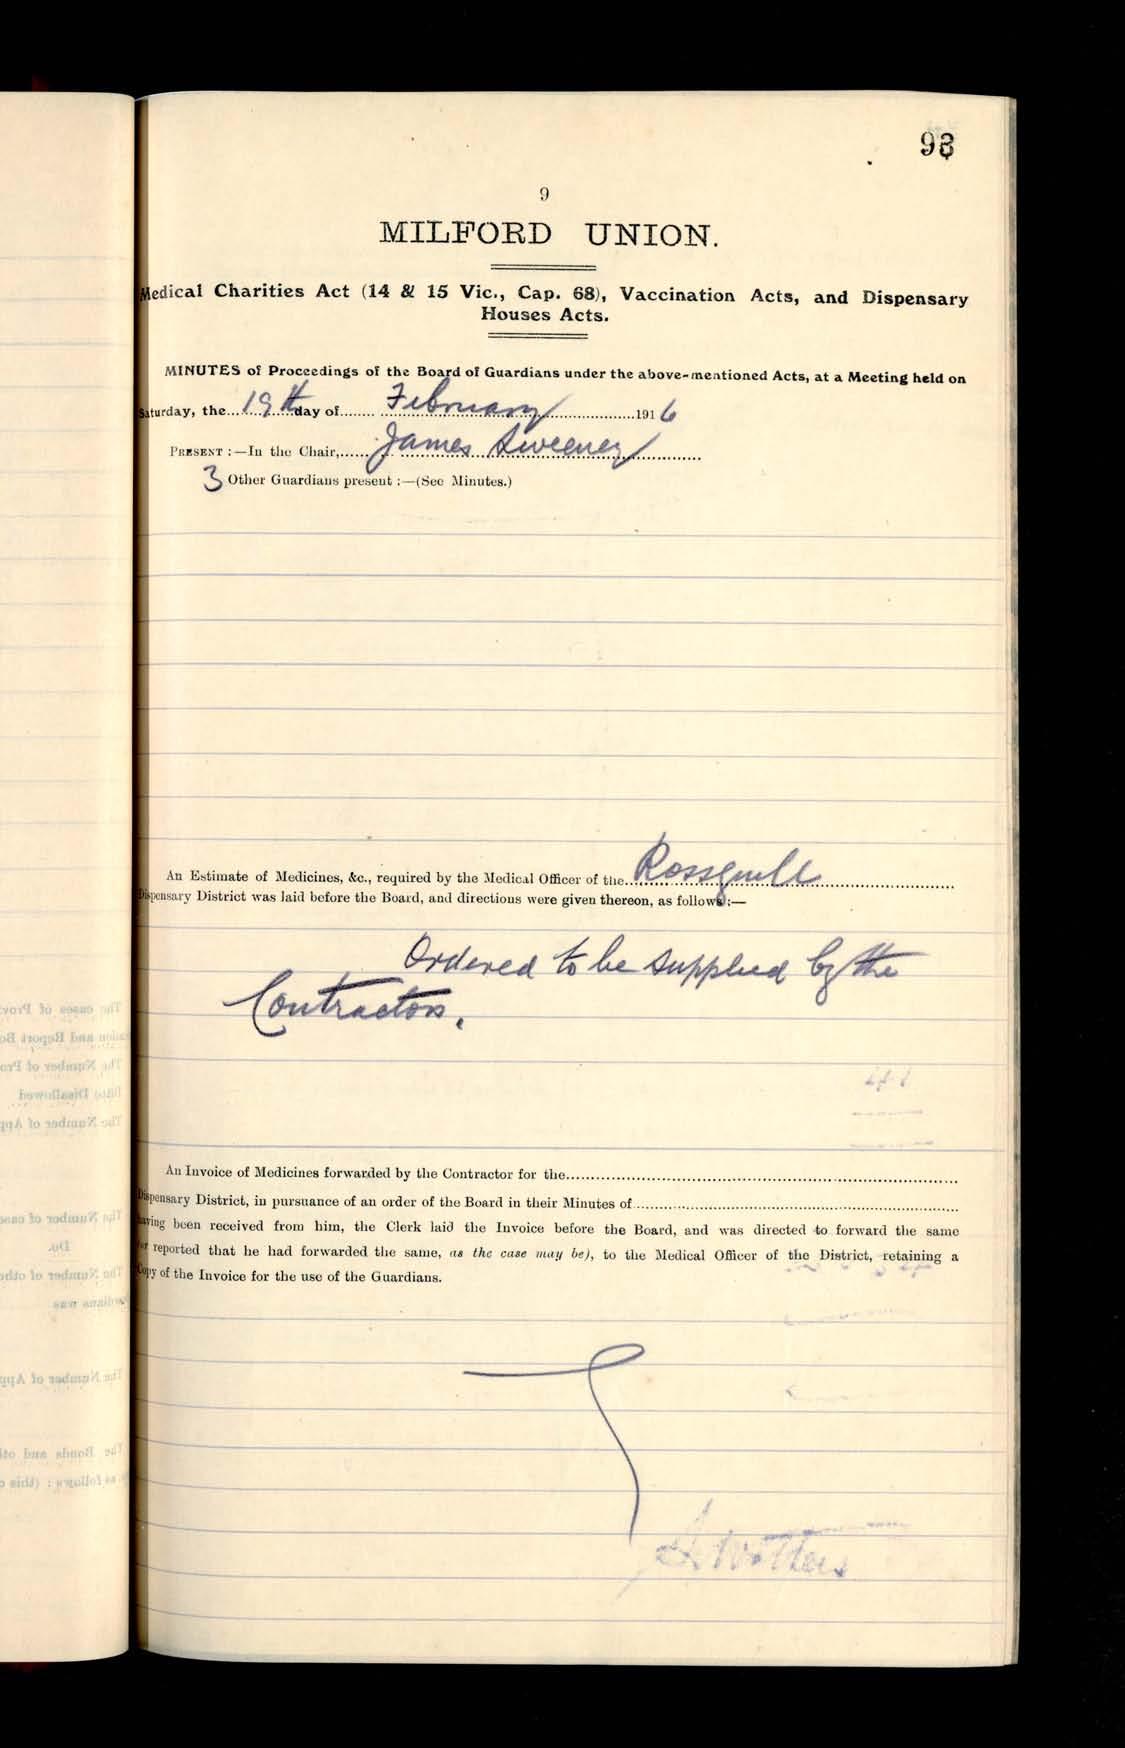 93
9
MILFORD UNION.
Medical Charities Act (14 & 15 Vic., Cap. 68), Vaccination Acts, and Dispensary
Houses Acts.
MINUTES of Proceedings of the Board of Guardians under the above-mentioned Acts, at a Meeting held on
Saturday, the 19th day of February 1916
PRESENT :—In the Chair, James Sweeney
3 Other Guardians present :—(See Minutes.)
An Estimate of Medicines, &c., required by the Medical Officer of the Rossguill
Dispensary District was laid before the Board, and directions were given thereon, as follows:—
Ordered to be supplied by the
Contractors.
An Invoice of Medicines forwarded by the Contractor for the
Dispensary District, in pursuance of an order of the Board in their Minutes of
having been received from him, the Clerk laid the Invoice before the Board, and was directed to forward the same
(or reported that he had forwarded the same, as the case may be), to the Medical Officer of the District, retaining a
Copy of the Invoice for the use of the Guardians.